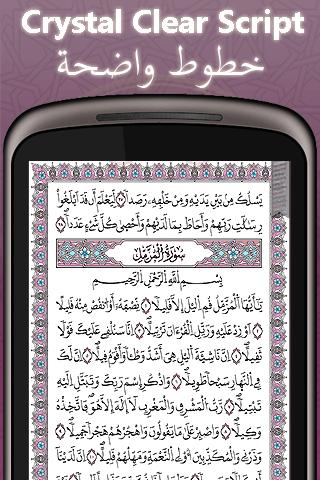 Crystal Clear Script
خطوط واضحة
يَسْلُكُ مِنْ بَيْنِ يَدَيْهِ وَمِنْ خَلْفِهِۦ رَصَدًا ٢٧ لِّيَعْلَمَ أَن قَدْ أَبْلَغُوا۟
رِسَٰلَٰتِ رَبِّهِمْ وَأَحَاطَ بِمَا لَدَيْهِمْ وَأَحْصَىٰ كُلَّ شَىْءٍ عَدَدًۢا ٢٨
سُورَةُ الْمُزَّمِّل
بِسْمِ ٱللَّهِ ٱلرَّحْمَٰنِ ٱلرَّحِيمِ
يَٰٓأَيُّهَا ٱلْمُزَّمِّلُ ١ قُمِ ٱلَّيْلَ إِلَّا قَلِيلًا ٢ نِّصْفَهُۥٓ أَوِ ٱنقُصْ مِنْهُ قَلِيلًا
٣ أَوْ زِدْ عَلَيْهِ وَرَتِّلِ ٱلْقُرْءَانَ تَرْتِيلًا ٤ إِنَّا سَنُلْقِى عَلَيْكَ قَوْلًا
ثَقِيلًا ٥ إِنَّ نَاشِئَةَ ٱلَّيْلِ هِىَ أَشَدُّ وَطْـًٔا وَأَقْوَمُ قِيلًا ٦ إِنَّ لَكَ
فِى ٱلنَّهَارِ سَبْحًا طَوِيلًا ٧ وَٱذْكُرِ ٱسْمَ رَبِّكَ وَتَبَتَّلْ إِلَيْهِ
تَبْتِيلًا ٨ رَّبُّ ٱلْمَشْرِقِ وَٱلْمَغْرِبِ لَآ إِلَٰهَ إِلَّا هُوَ فَٱتَّخِذْهُ
وَكِيلًا ٩ وَٱصْبِرْ عَلَىٰ مَا يَقُولُونَ وَٱهْجُرْهُمْ هَجْرًا جَمِيلًا ١٠
وَذَرْنِى وَٱلْمُكَذِّبِينَ أُو۟لِى ٱلنَّعْمَةِ وَمَهِّلْهُمْ قَلِيلًا ١١ إِنَّ لَدَيْنَآ